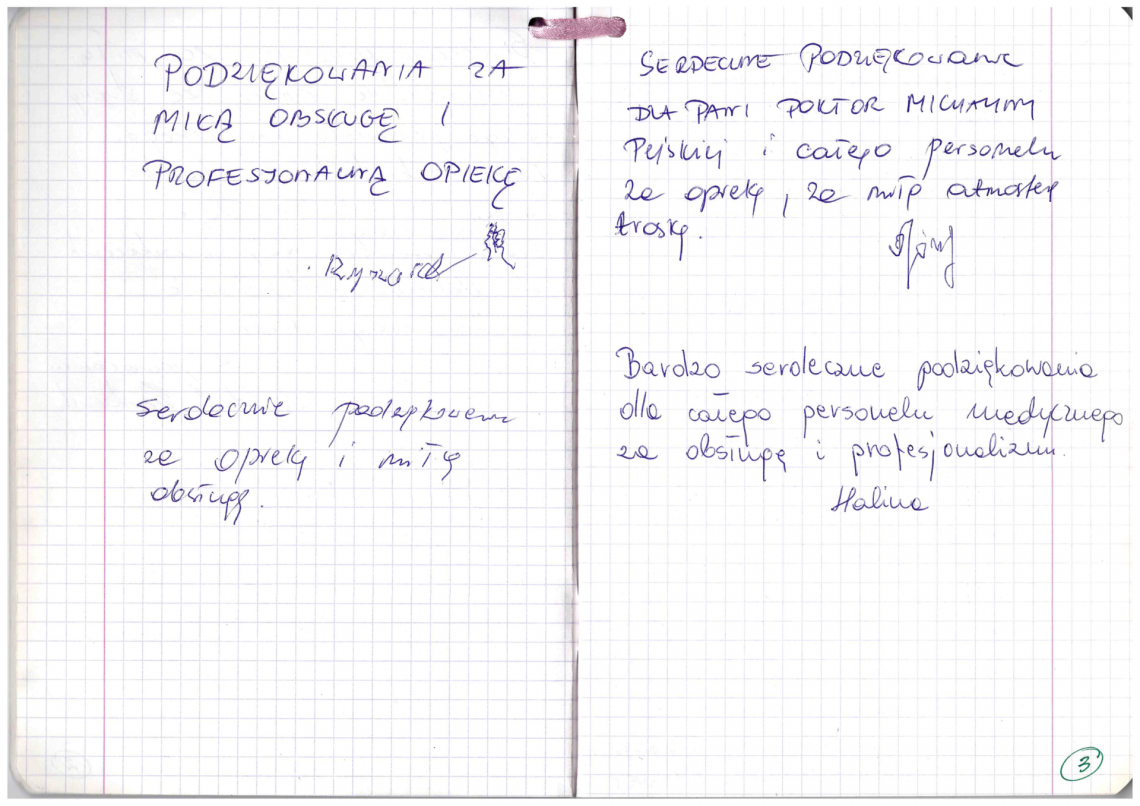 PODZIĘKOWANIA ZA
MIŁĄ OBSŁUGĘ I
PROFESJONALNĄ OPIEKĘ
Ryszard
Serdecznie podziękowania
za opiekę i miłą
obsługę.
SERDECZNE PODZIĘKOWANIE
DLA PANI DOKTOR MICHALINY
i całego personelu
za opiekę, za miłą atmosferę
troskę.
Bardzo serdeczne podziękowania
dla całego personelu medycznego
za obsługę i profesjonalizm.
Halina
3